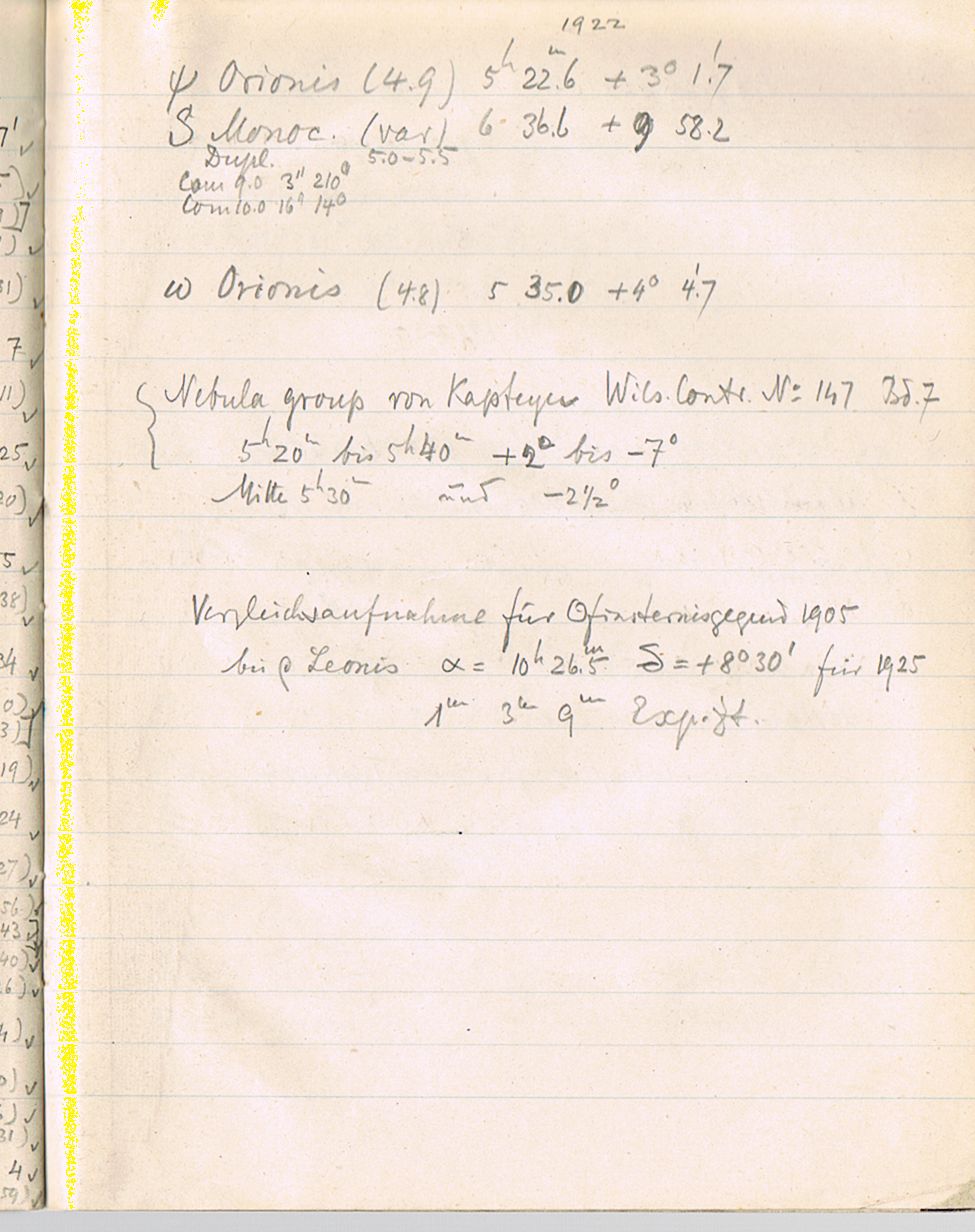 1922
ψ Orionis (4.9) 5h 22m.6 + 3° 1'.7
S Monoc. (var) 6 36.6 + 9 58.2
Dupl. 5.0-5.5
Com 9.0 3" 210°
Com 10.0 16" 14°
ω Orionis (4.8) 5 35.0 +4° 4'.7
Nebula group von Kapteyn Wils. Contr. No 147 Bd. 7
5h20m bis 5h40m +2° bis -7°
Mitte 5h30m und -2½°
Vergleichsaufnahme für ☉finsternisgegend 1905
bei ρ Leonis α = 10h 26.5m δ = +8°30' für 1925
1m 3m 9m Exp.zt.
7'
31)
7
11)
25
20)
5
38)
34
0)
3)]
19)
24
27)
56)
43
40)
26)
4)
31)
4
59)